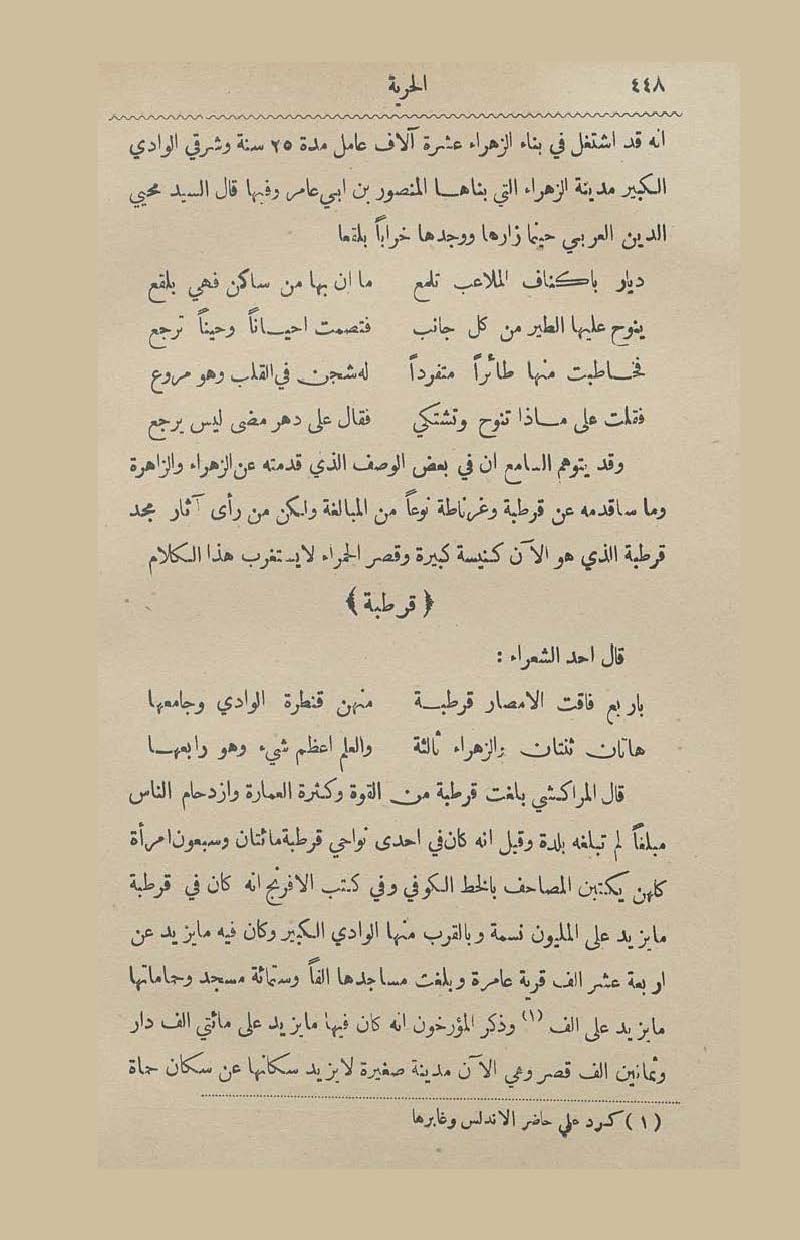 ٤٤٨ الحرية
انه قد اشتغل في بناء الزهراء عشرة آلاف عامل مدة ٢٥ سنة وشرقي الوادي
الكبير مدينة الزهراء التي بناهـا المنصور بن ابي عامر وفيها قال السيد محيي
الدين العربي حينما زارها ووجدها خراباً بلقعا
ديار باكناف الملاعب تلمع ما ان بها من ساكن فهي بلقع
ينوح عليها الطير من كل جانب فتصمت احيـاناً وحيناً ترجع
فخـاطبت منها طائراً متفرداً له شجن في القلب وهو مروع
فقلت على مـاذا تنوح وتشتكي فقال على دهر مضى ليس يرجع
وقد يتوهم السامع ان في بعض الوصف الذي قدمته عن الزهراء والزاهرة
وما ساقدمه عن قرطبة وغرناطة نوعاً من المبالغة ولكن من رأى آثار مجد
قرطبة الذي هو الآن كنيسة كبيرة وقصر الحمراء لا يستغرب هذا الكلام
﴿ قرطبة ﴾
قال احد الشعراء :
باربع فاقت الامصار قرطبـة منهن قنطرة الوادي وجامعها
هاتان ثنتان والزهراء ثالثة والعلم اعظم شيء وهو رابعهـا
قال المراكشي بلغت قرطبة من القوة وكثرة العمارة وازدحام الناس
مبلغاً لم تبلغه بلدة وقيل انه كان في احدى نواحي قرطبة مائتان وسبعون امرأة
كلهن يكتبن المصاحف بالخط الكوفي وفي كتب الافرنج انه كان في قرطبة
مايزيد على المليون نسمة وبالقرب منها الوادي الكبير وكان فيه مايزيد عن
اربعة عشر الف قرية عامرة وبلغت مساجدها الفاً وستمائة مسجد وحماماتها
مايزيد على الف (١) وذكر المؤرخون انه كان فيها مايزيد على مائتي الف دار
وثمانين الف قصر وهي الآن مدينة صغيرة لايزيد سكانها عن سكان حماة
(١) كرد علي حاضر الاندلس وغابرها